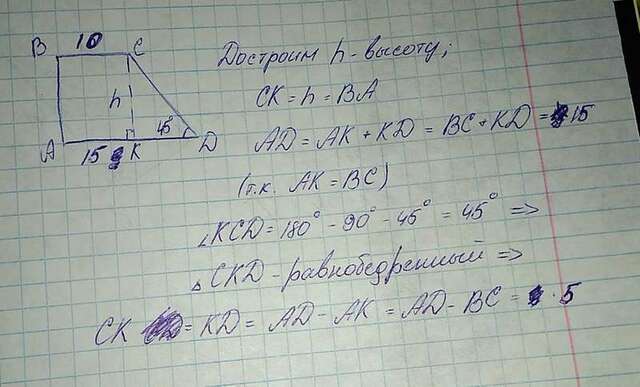 B 10 C
h
45°
A 15 K D
Достроим h-высоту;
CK = h = BA
AD = AK + KD = BC + KD = 15
(т.к. AK = BC)
∠KCD = 180° - 90° - 45° = 45° =>
△CKD - равнобедренный =>
CK = KD = AD - AK = AD - BC = 5